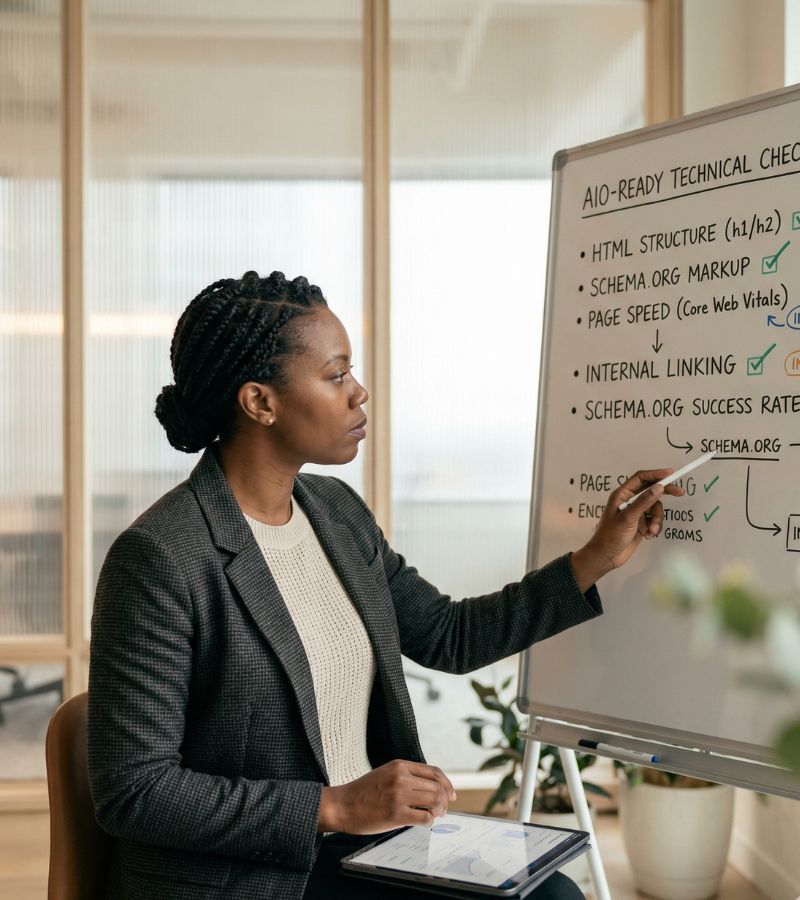 AIO-READY TECHNICAL CHEC
• HTML STRUCTURE (h1/h2)
• SCHEMA.ORG MARKUP
• PAGE SPEED (Core Web Vitals)
• INTERNAL LINKING
• SCHEMA.ORG SUCCESS RATE
SCHEMA.ORG
• PAGE